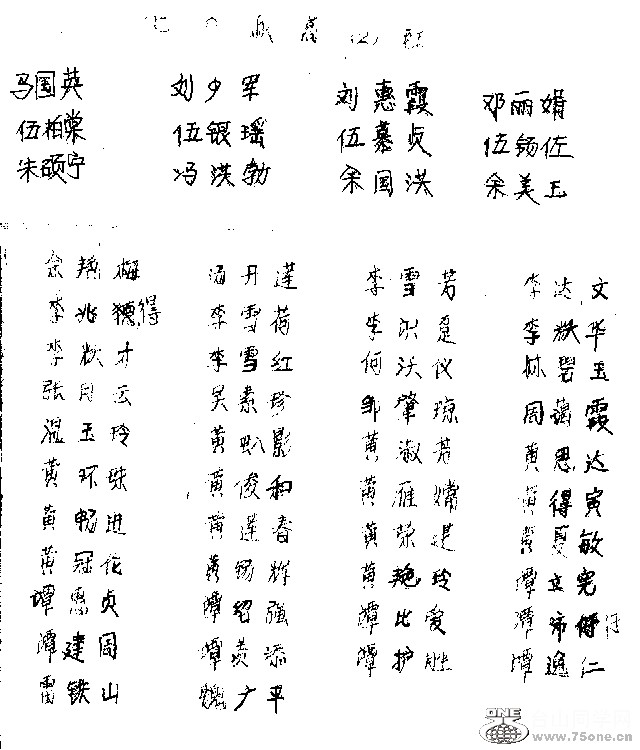 马国英 刘少军 刘惠霞 邓丽娟
伍柏棠 伍银瑶 伍慕贞 伍锡佐
朱硕宁 冯洪勃 余国洪 余美玉
余 梅 丹莲 李雪芳 李达文
李兆 得 李雪荷 李洪 李 华
李 才 李雪红 何沃仪 林 玉
张月云 吴素珍 邹肇琼 周蔼霞
温玉玲 黄 影 黄淑芳 黄思达
黄环珠 黄俊和 黄雁嫦 黄得寅
黄畅进 黄莲春 黄荣 黄夏敏
黄冠伦 黄锡辉 黄艳玲 谭立宪
谭惠贞 谭绍强 谭比爱 谭沛
谭建周 谭 添 谭护胜 谭逸仁
雷铁山 魏广平
ONE 台山同学网
www.75one.cn